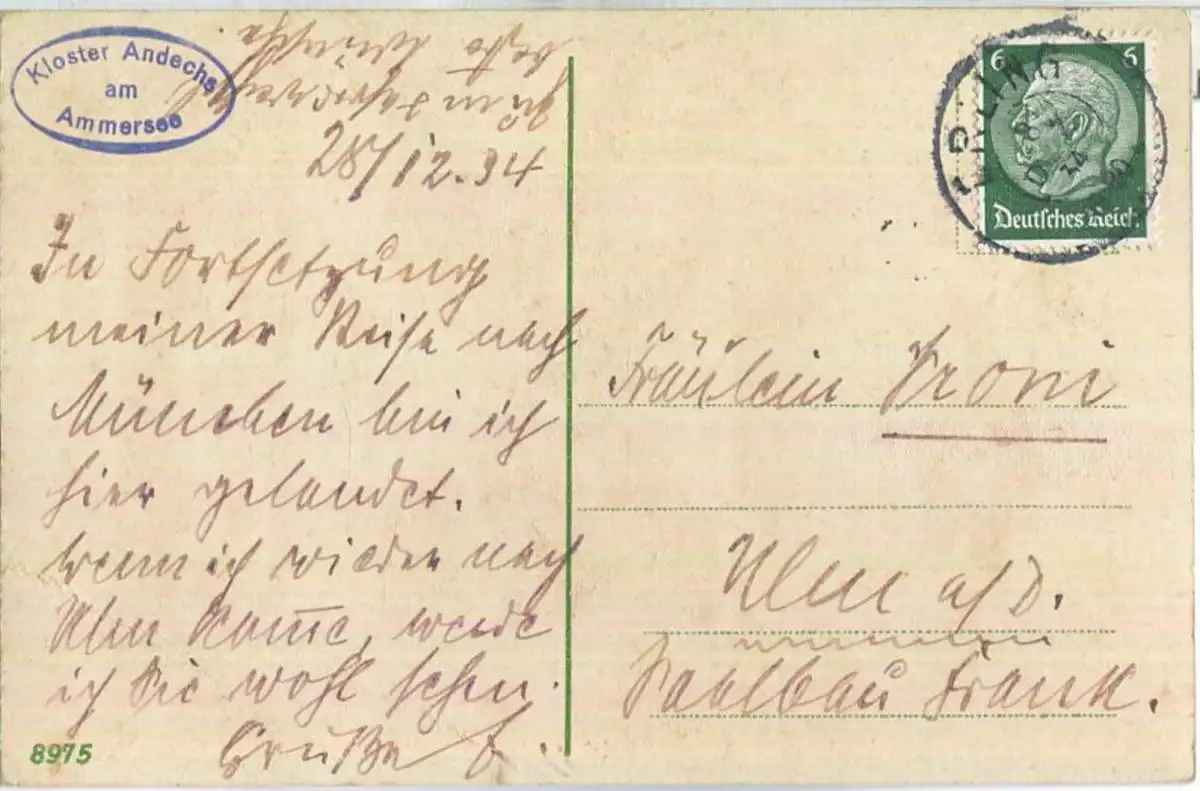 Kloster Andechs
am
Ammersee
beste Wünsche
zum Jahreswechsel
28/12.34
In Fortsetzung
meiner Reise nach
München bin ich
hier gelandet.
Wenn ich wieder nach
Ulm kom̅e, werde
ich Sie wohl sehen.
Grüße
8975
6 6
Deutsches Reich
Fräulein Vroni
Ulm a/D.
Saalbau Frank.